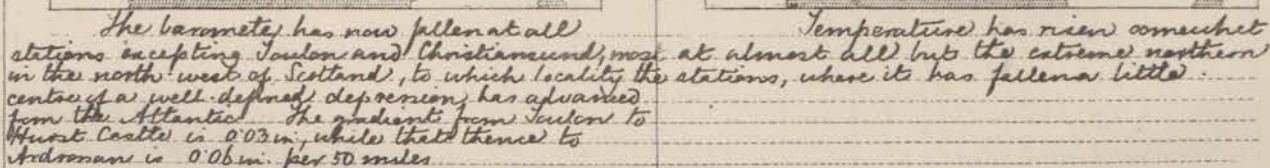 The barometer has now fallen at all
stations excepting Toulon and Christiansund, most
in the north west of Scotland, to which locality the
centre of a well-defined depression has advanced
from the Atlantic. The gradient from Toulon to
Hurst Castle is 0.03 in, while that thence to
Ardrossan is 0.06 in. per 50 miles
Temperature has risen somewhat
at almost all but the extreme northern
stations, where it has fallen a little.